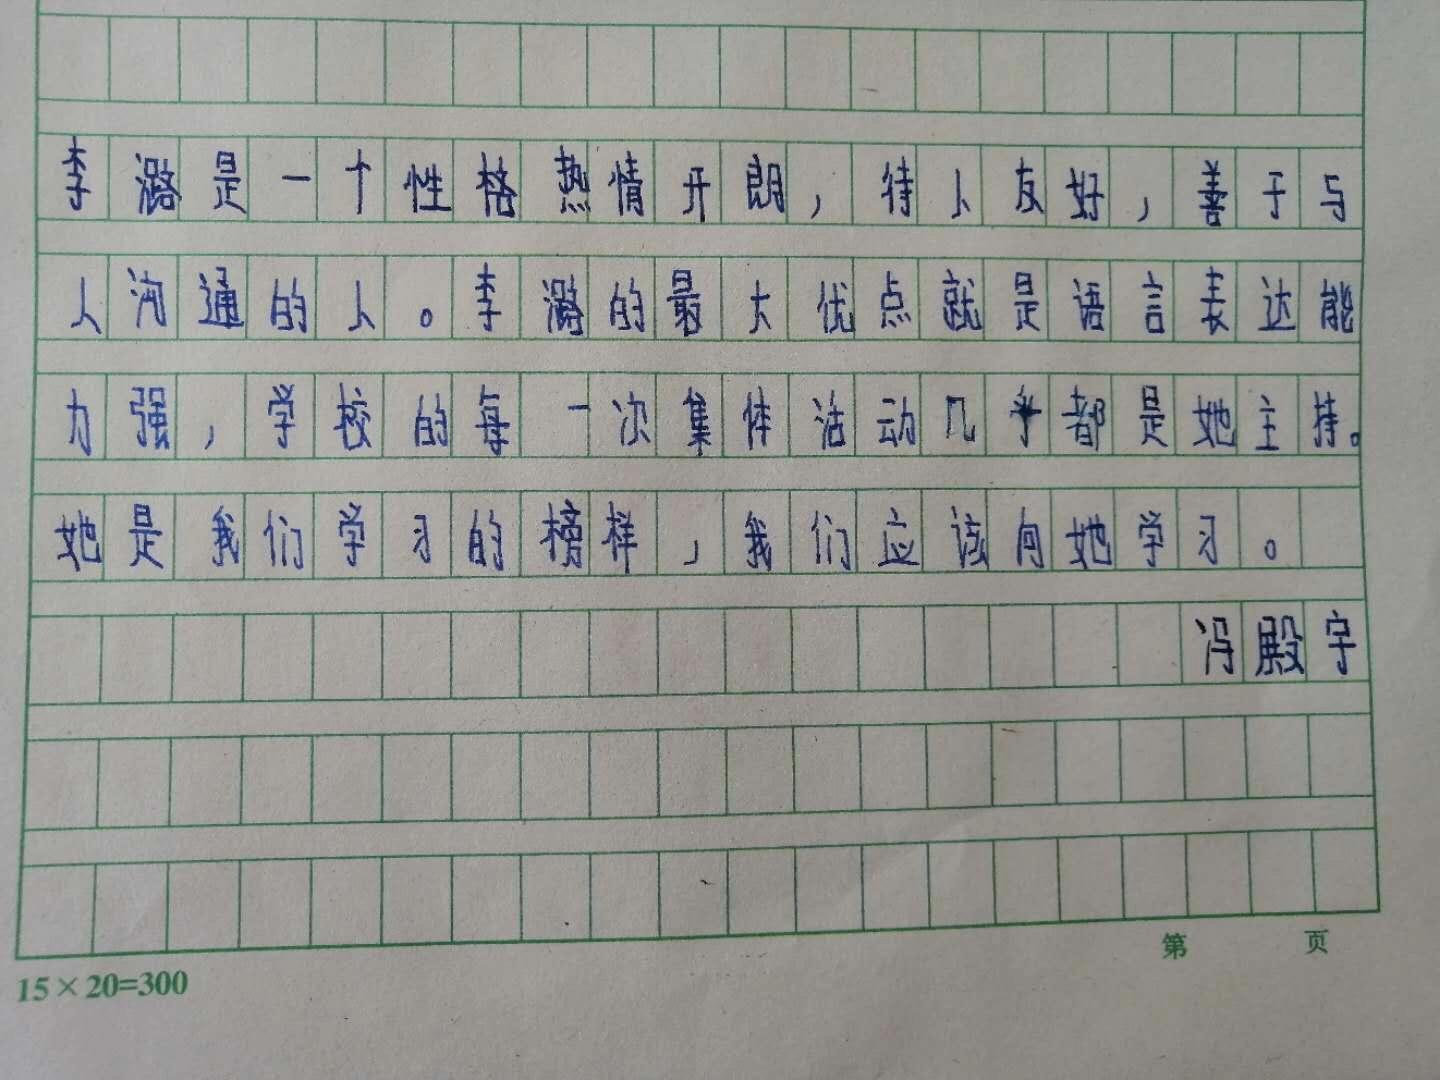 李潞是一个性格热情开朗，待人友好，善于与
人沟通的人。李潞的最大优点就是语言表达能
力强，学校的每一次集体活动几乎都是她主持。
她是我们学习的榜样，我们应该向她学习。
冯殿宇
第 页
15×20=300